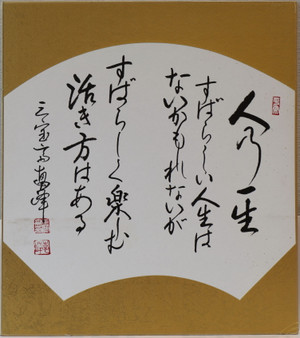 人の一生
すばらしい人生は
ないかもれないが
すばらしく楽しむ
活き方はある